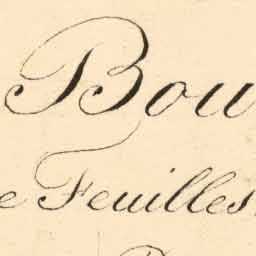 Bou
e Feuilles